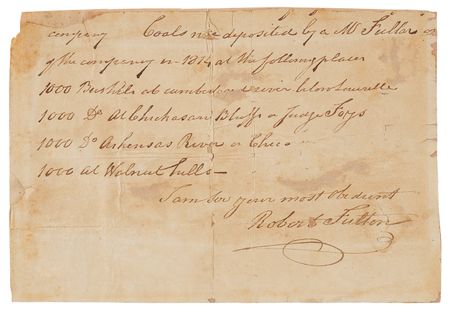 company Coals were deposited by a Mr Fuller
of the company in 1814 at the following places
1000 Bushills at cumberland river below
1000 Do At Chickasaw Bluffs or Judge Foys
1000 Do Arkensas River or
1000 at Walnut hills
I am Sir your most Obedient
Robert Fulton